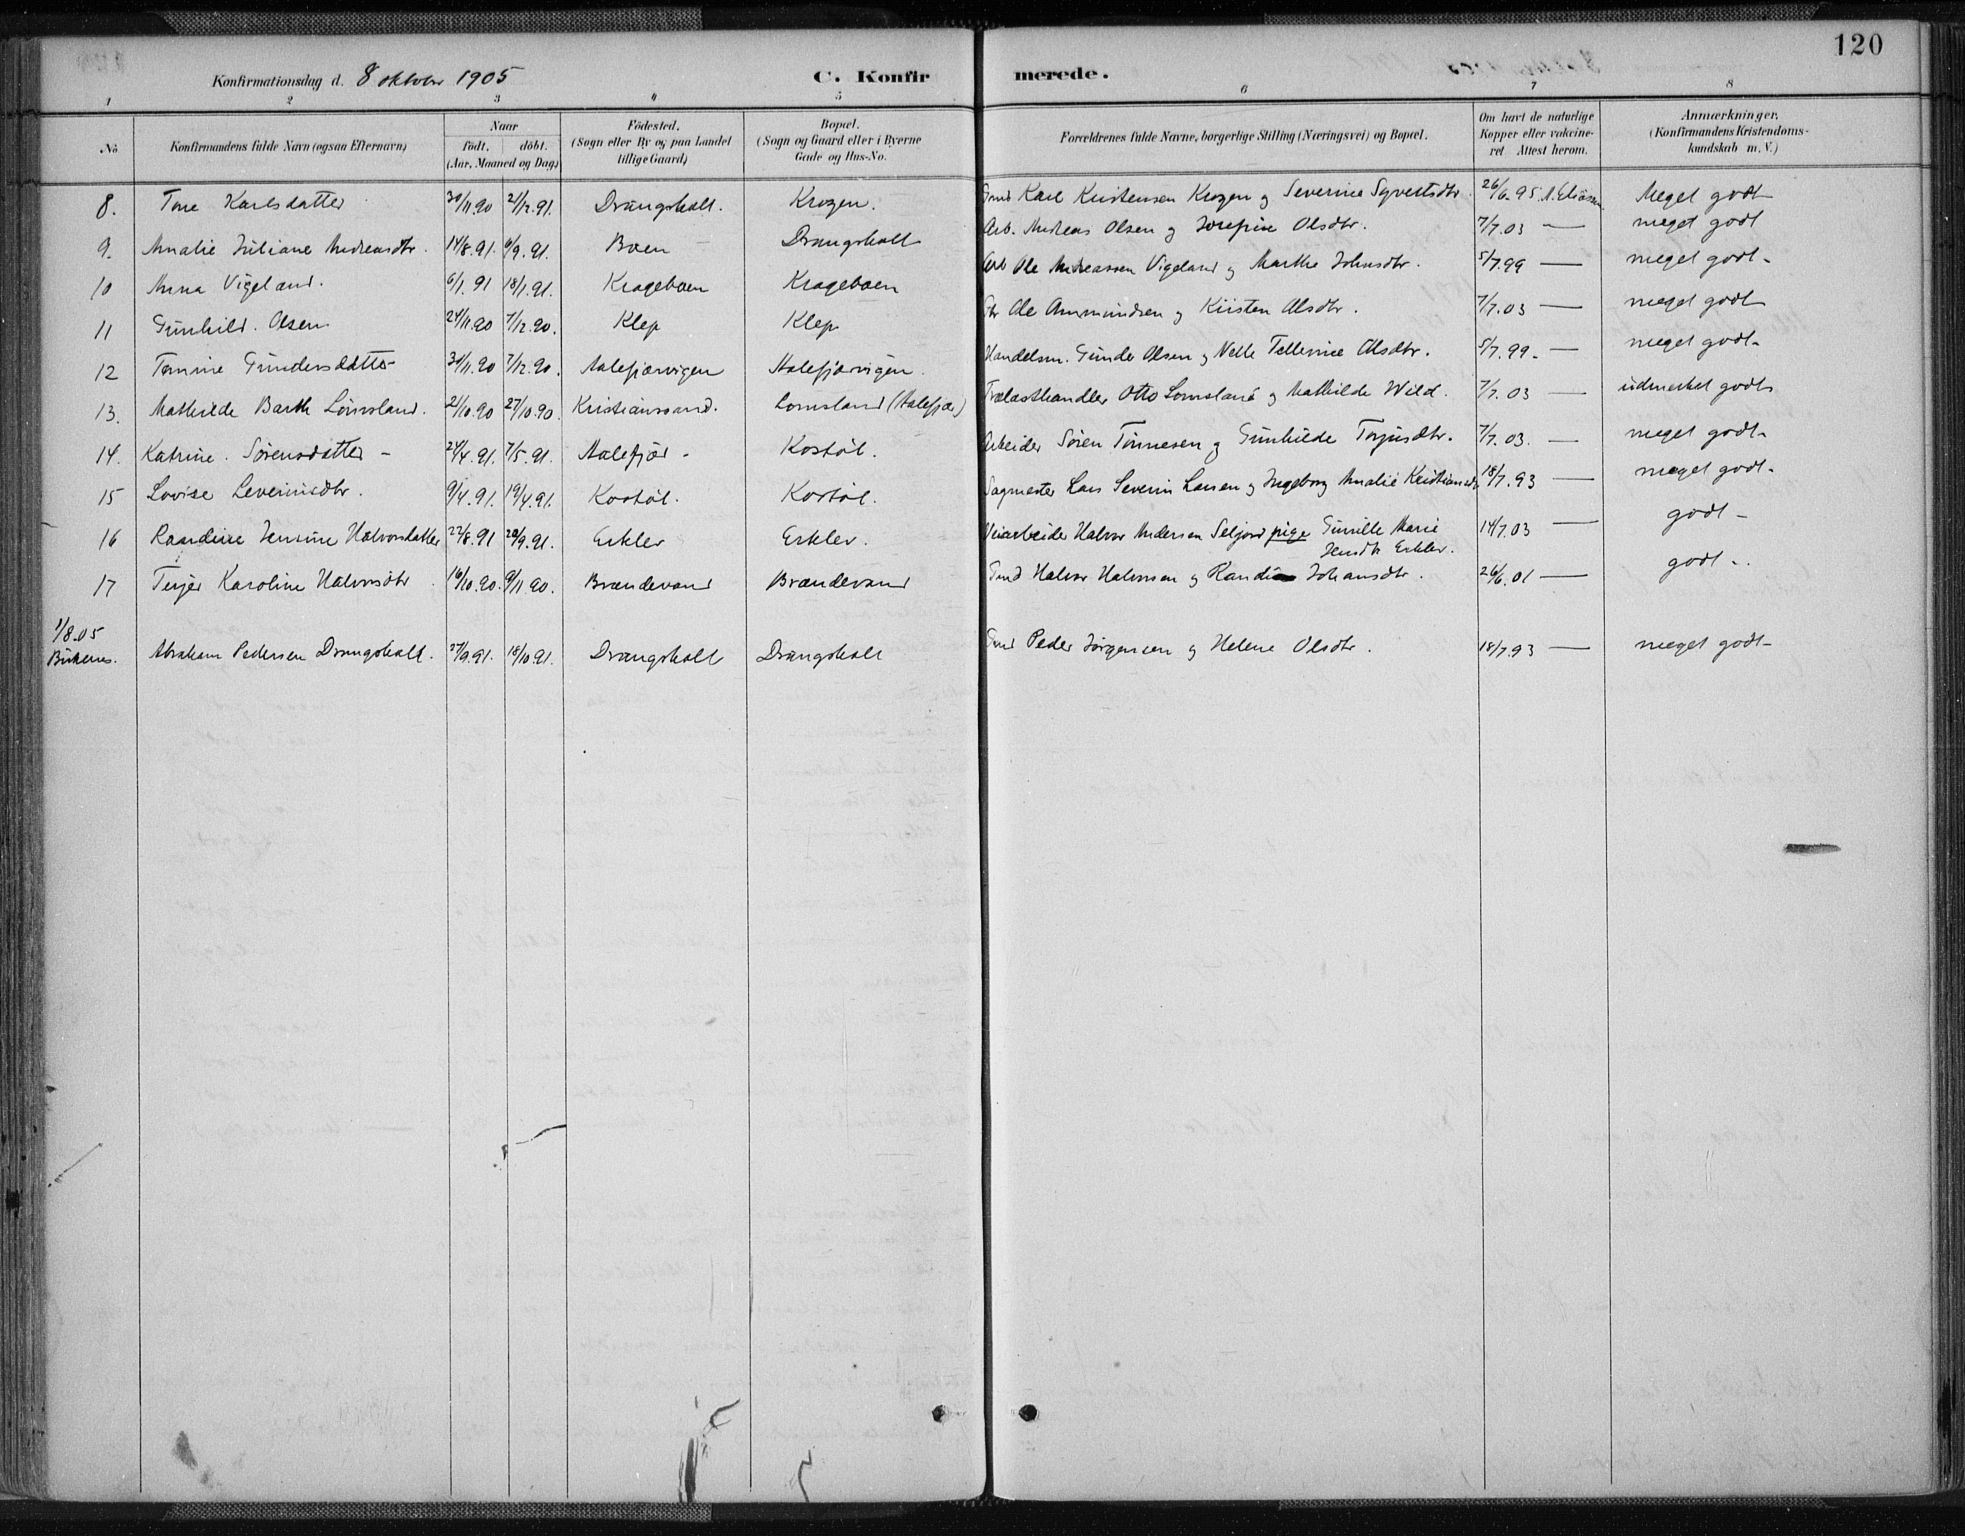 120
Konfirmationsdag d. 8 oktober 1905 C. Konfirmerede.
1 2 3 4 5 6 7 8
No Konfirmandens fulde Navn (ogsaa Efternavn) Naar födt. döbt. (Aar, Maaned og Dag) Födested. (Sogn eller By og paa Landet tillige Gaard) Bopæl. (Sogn og Gaard eller i Byerne Gade og Hus-No. Forældrenes fulde Navne, borgerlige Stilling (Næringsvei) og Bopæl. Om havt de naturlige Kopper eller vakcineret Attest herom. Anmærkninger. (Konfirmandens Kristendomskundskab m. V.)
8. Tone Karlsdatter 30/11.90 2/12.91. Drangsholt. Krogen. Gmd Karl Kristensen Krogen og Severine Syvertsdtr. 26/6.95 Meget godt
9. Amalie Juliane Andreasdtr. 14/8.91. 6/9.91. Boen Drangsholt Arb. Andreas Olsen og Josefine Olsdtr. 7/7.03 — meget godt
10 Anna Vigeland. 6/1.91 18/1.91. Krageboen Krageboen Arb Ole Andreassen Vigeland og Marthe Johnsdtr. 5/7.99 — meget godt-
11 Gunhild. Olsen 24/11.90 7/12.90. Klep Klep Ole Ammundsen og Kirsten Olsdtr. 7/7.03 — meget godt
12 Tomine Gundersdatter 30/11.90 7/12.90. Aalefjærvigen Aalefjærvigen. Handelsm. Gunder Olsen og Nelle Tellevine Olsdtr. 5/7.99. — meget godt-
13. Mathilde Barth Lomsland. 2/10.90 27/10.90. Kristianssand. Lomsland (Aalefjær) Trælasthandler Otto Lomsland og Mathilde Wild. 7/7.03 — udmerket godt
14. Katrine. Sørensdatter - 24/4.91. 7/5.91. Aalefjær - Kostøl. Arbeider Søren Tønnesen og Gunhilde Torjusdtr. 7/7.03. — meget godt-
15 Lovise Severinsdtr. 9/4.91. 19/4.91. Kostøl. Kostøl. Sagmester Lars Severin Larsen og Ingeborg Amalie Kristiansdtr 18/7.93 — meget godt-
16 Randine Jensine Halvorsdatter 22/8.91 20/9.91. Erklev Erklev. Veiarbeider Halvor Andersen Seljord pige Gunille Marie 14/7.03 — godt-
Jensdtr Erklev.
17 Terjer Karoline Halvorsdtr 16/10.90. 9/11.90. Brændevand Brændevand Gmd Halvor Halvorsen og Randi Johansdtr. 26/6.01 — godt-
1/8.05
Birkenes. Abraham Pedersen Drangsholt. 27/9.91. 18/10.91. Drangsholt Drangsholt Gmd Peder Jørgensen og Helene Olsdtr. 18/7.93 — meget godt-